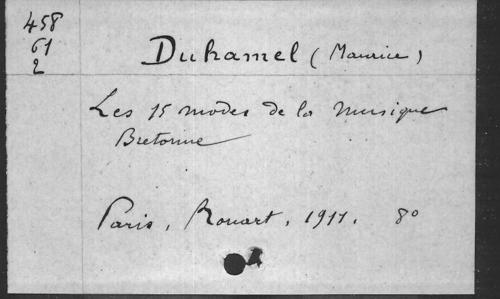 458
61
2
Duhamel (Maurice)
Les 15 modes de la musique
Bretonne
Paris, Rouart, 1911. 8º
A